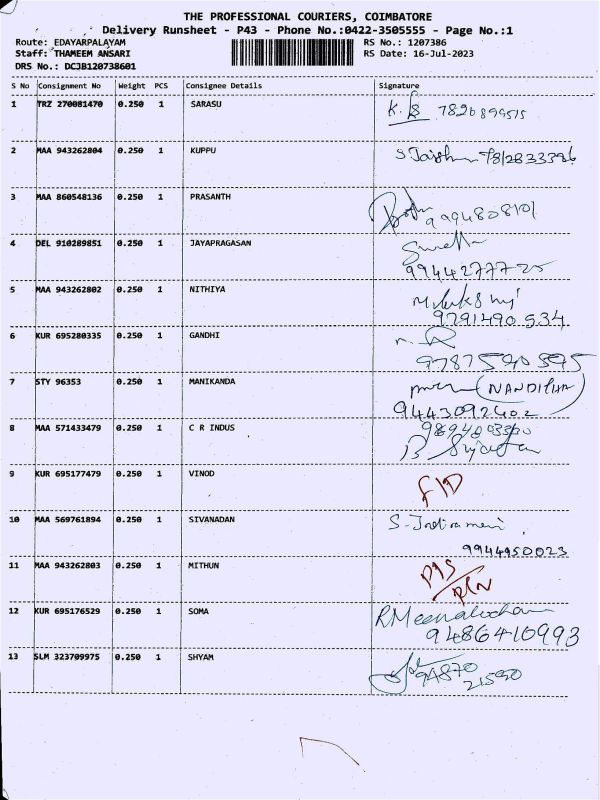 THE PROFESSIONAL COURIERS, COIMBATORE
Delivery Runsheet - P43 - Phone No.:0422-3505555 - Page No.:1
Route: EDAYARPALAYAM RS No.: 1207386
Staff: THAMEEM ANSARI RS Date: 16-Jul-2023
DRS No.: DCJB120738601
S No Consignment No Weight PCS Consignee Details Signature
1 TRZ 270081470 0.250 1 SARASU K.
2 MAA 943262804 0.250 1 KUPPU
3 MAA 860548136 0.250 1 PRASANTH
9994808101
4 DEL 910289851 0.250 1 JAYAPRAGASAN
9944277725
5 MAA 943262802 0.250 1 NITHIYA
9791490534
6 KUR 695280335 0.250 1 GANDHI
9787590595
7 STY 96353 0.250 1 MANIKANDA
9443092402
8 MAA 571433479 0.250 1 C R INDUS
9 KUR 695177479 0.250 1 VINOD
10 MAA 569761894 0.250 1 SIVANADAN
9944950023
11 MAA 943262803 0.250 1 MITHUN
12 KUR 695176529 0.250 1 SOMA
9486410993
13 SLM 323709975 0.250 1 SHYAM
94870
21590